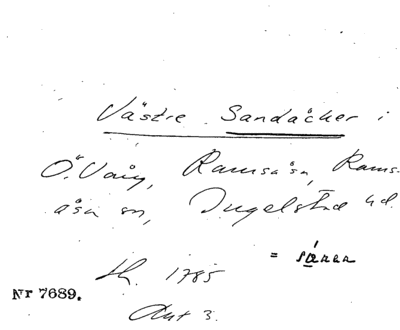 Västre Sandåcker i
Ö. Vång, Ramsåsa, Rams-
åsa sn, Ingelstad hd.
= såna
h. 1785
Nr 7689.
Akt 3.